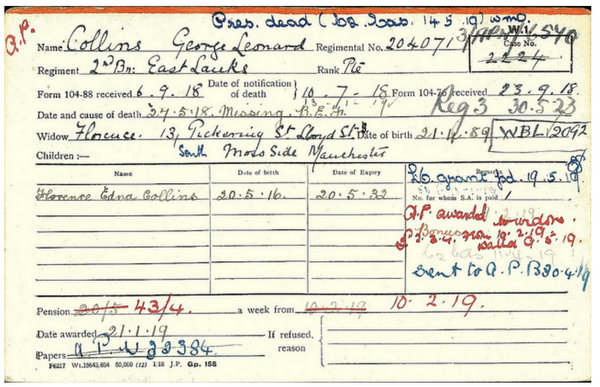 Pres. dead (62 Cas. 14.5.19) wmd.
A.P.
Name: Collins George Leonard Regimental No. 204071 3/AP4/6540
W.1.
Case No.
2224
Regiment 2nd Bn: East Lancs Rank Pte
Form 104-88 received 6.9.18 Date of notification of death 10.7-18 Form 104-76 received 23.9.18.
Date and cause of death 27.5.18. Missing. B.E.F. Reg 3 30.5.23
Widow Florence. 13, Pickering St. Lloyd St. Date of birth 21.11.89 WBL/2092
Children :— South Moss Side Manchester
Name Date of birth Date of Expiry Remarks
£6 grant pd. 19.5.19
No. for whom S.A. is paid 1
Florence Edna Collins 20.5.16. 20.5.32
A.P. awarded to widow.
Bonus
from 10.2.19.
Sent to A.P.B 30.4/19
Pension 20/5 43/4. a week from 10.2.19 10.2.19.
Date awarded 21.1.19 If refused, reason
Papers A.P.W 22384.
F6217 Wt.15643/854 50,000 (12) 1:18 J.P. Gp. 158